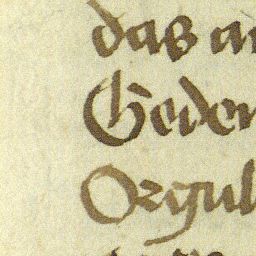 das an
Geden
Orgul